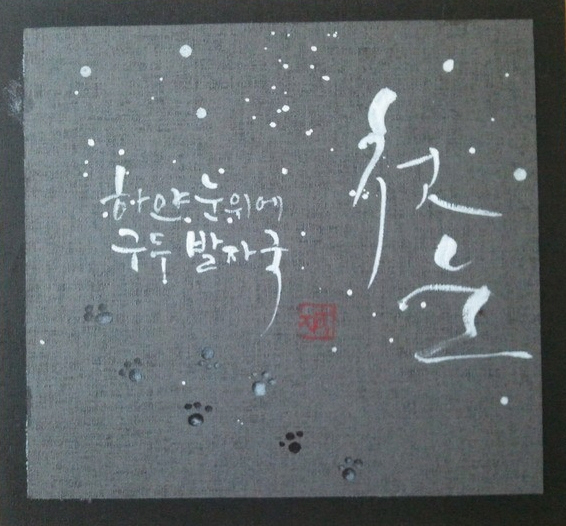 첫눈
하얀 눈위에
구두 발자국